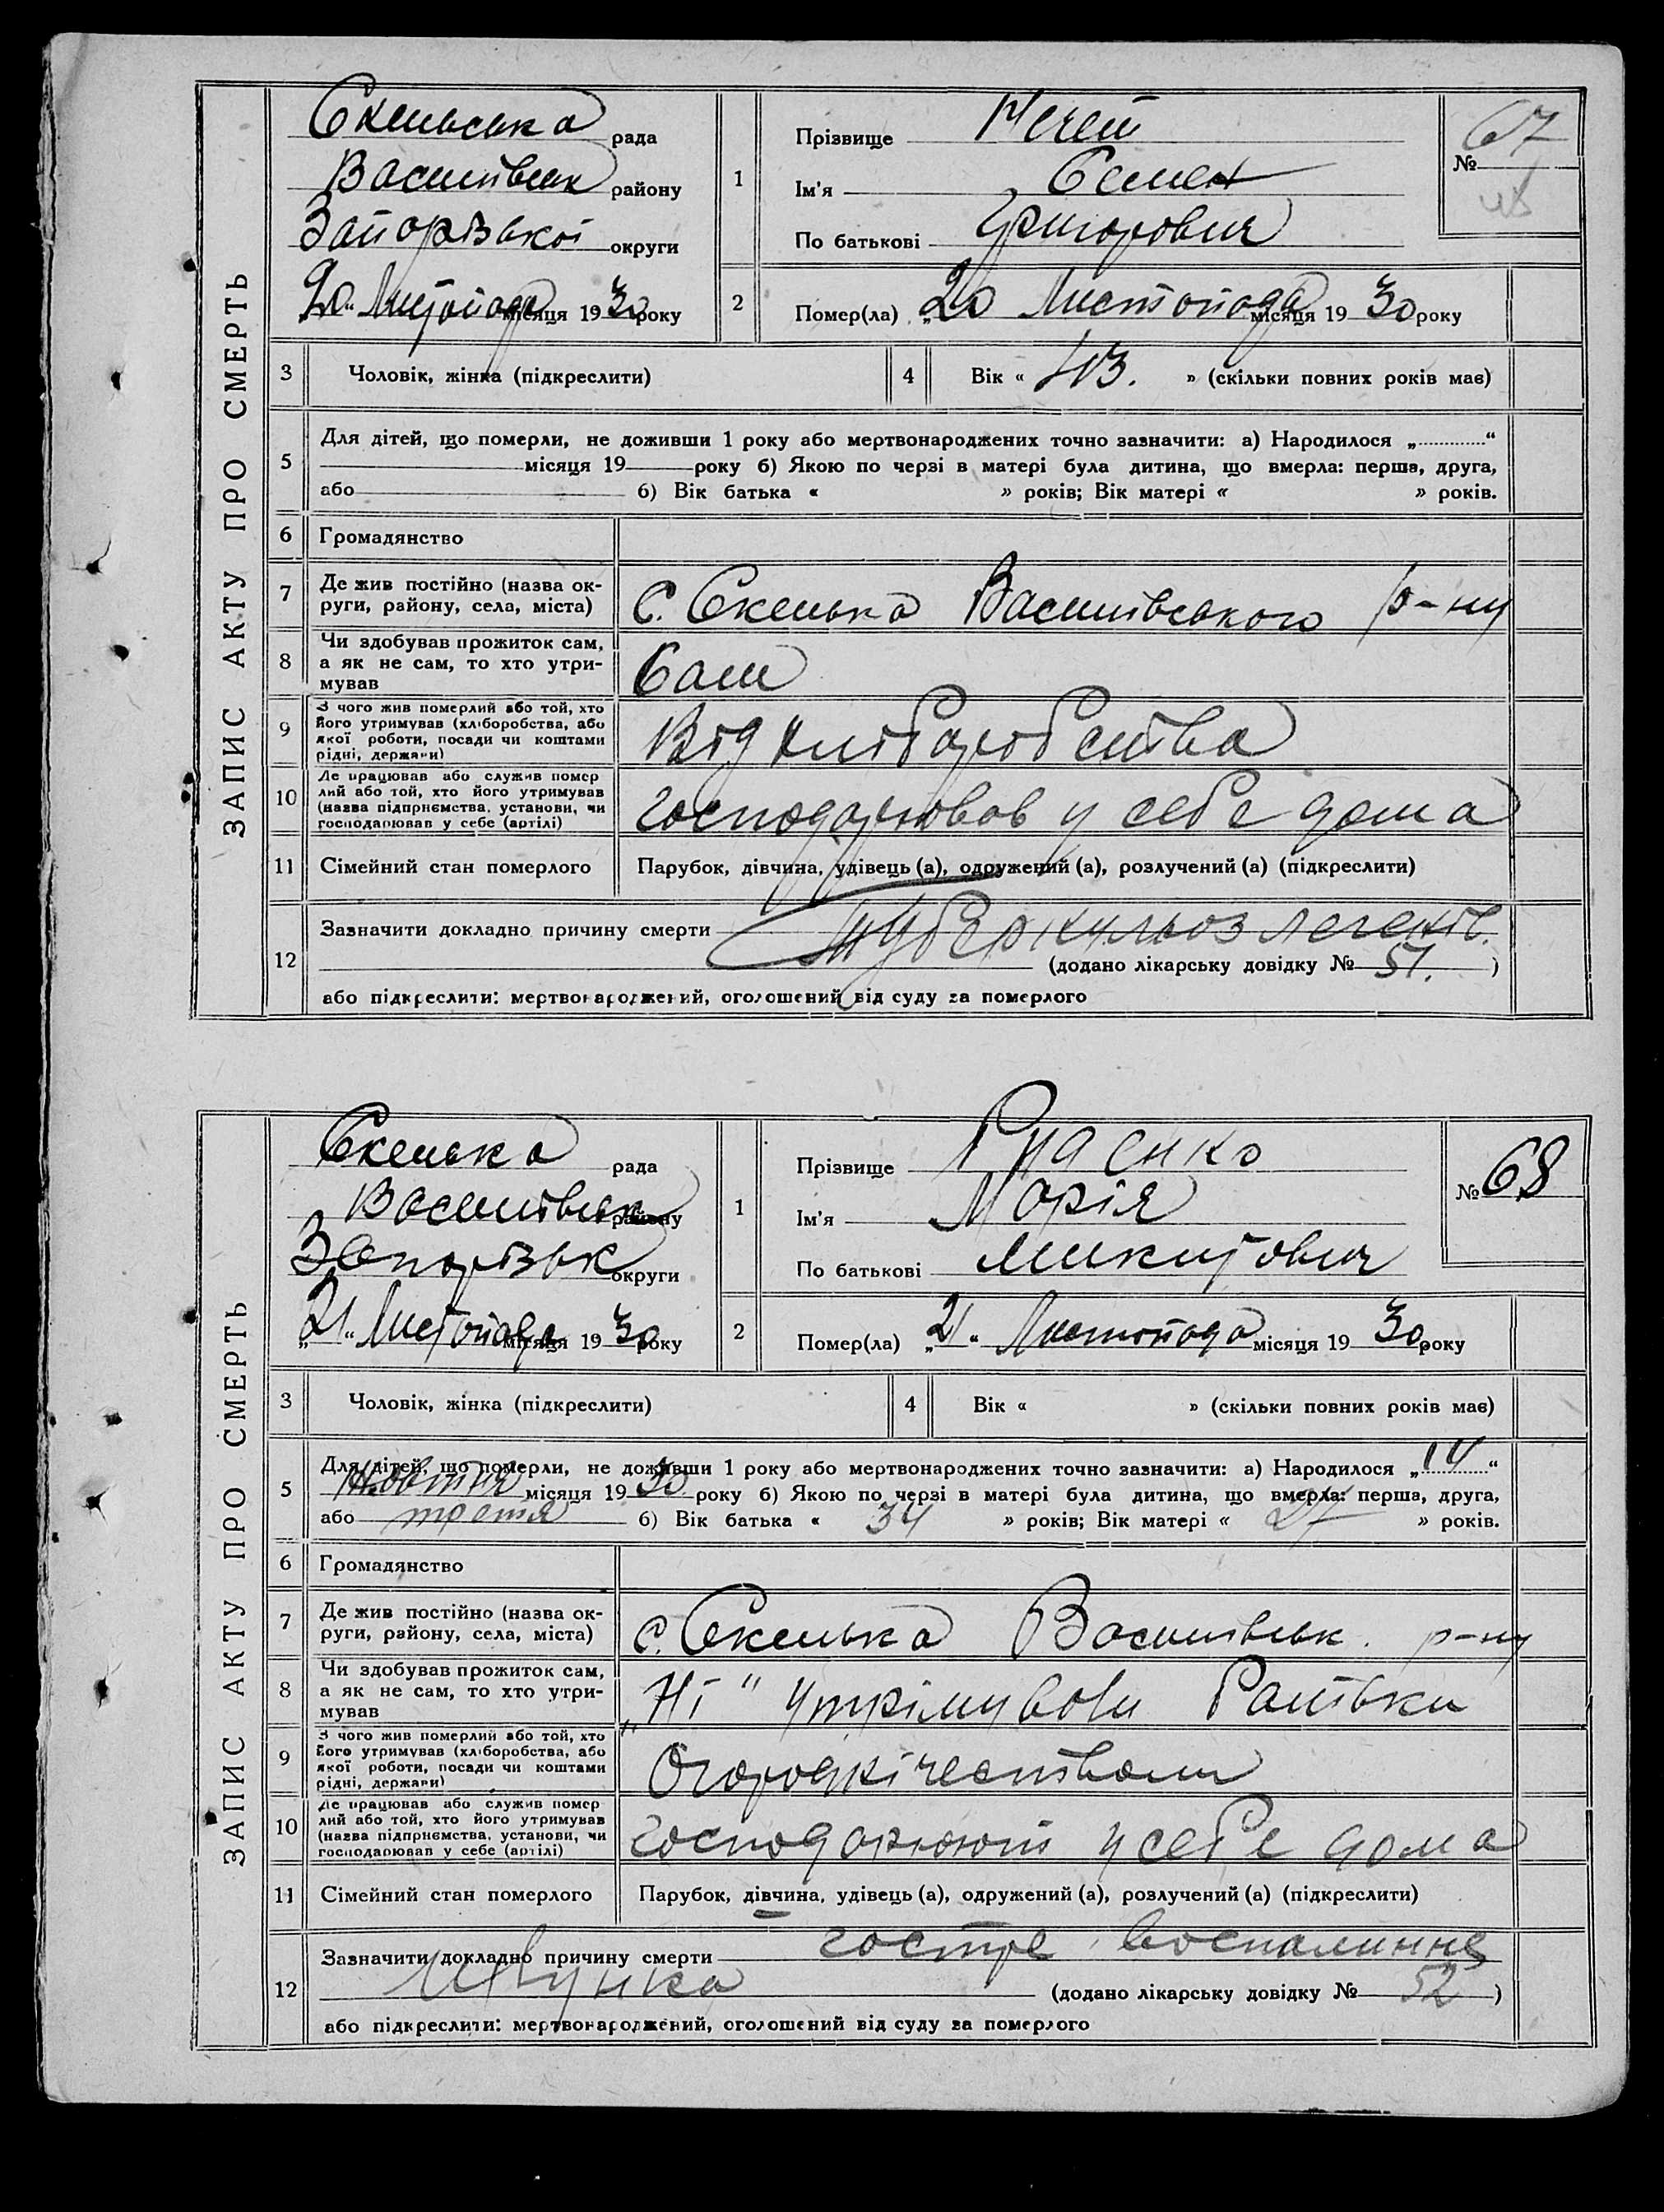 ЗАПИС АКТУ ПРО СМЕРТЬ
Скельська рада
Василівськ району
Запорізької округи
„20“ Листопада місяця 1930 року
1
Прізвище Мечет
Ім'я Семен
По батькові Григорович
№ 67
2
Помер(ла) „20 Листопада місяця 19 30 року
3 Чоловік, жінка (підкреслити)
4 Вік « 43. » (скільки повних років має)
5
Для дітей, що померли, не доживши 1 року або мертвонароджених точно зазначити: а) Народилося „ “
місяця 19 року б) Якою по черзі в матері була дитина, що вмерла: перша, друга,
або б) Вік батька « » років; Вік матері « » років.
6 Громадянство
7
Де жив постійно (назва ок-
руги, району, села, міста)
с. Скелька Василівського р-ну
8
Чи здобував прожиток сам,
а як не сам, то хто утри-
мував
Сам
9
З чого жив померлий або той, хто
його утримував (хліборобства, або
якої роботи, посади чи коштами
рідні, держави)
Від хліборобства
10
Де працював або служив помер
лий або той, хто його утримував
(назва підприємства, установи, чи
господарював у себе (артілі)
господарював у себе дома
11 Сімейний стан померлого
Парубок, дівчина, удівець (а), одружений (а), розлучений (а) (підкреслити)
12
Зазначити докладно причину смерти туберкульоз легенів.
(додано лікарську довідку № 51. )
або підкреслити: мертвонароджений, оголошений від суду за померлого
ЗАПИС АКТУ ПРО СМЕРТЬ
Скелька рада
Василівськ району
Запорізьк округи
„21“ Листопада місяця 19 30 року
1
Прізвище
Ім'я Марія
По батькові Микитович
№ 68
2
Помер(ла) „21“ Листопада місяця 19 30 року
3 Чоловік, жінка (підкреслити)
4 Вік « » (скільки повних років має)
5
Для дітей, що померли, не доживши 1 року або мертвонароджених точно зазначити: а) Народилося „14“
Жовтня місяця 19 30 року б) Якою по черзі в матері була дитина, що вмерла: перша, друга,
або третя б) Вік батька « 34 » років; Вік матері « 27 » років.
6 Громадянство
7
Де жив постійно (назва ок-
руги, району, села, міста)
с. Скелька Василівськ. р-ну
8
Чи здобував прожиток сам,
а як не сам, то хто утри-
мував
„Ні“ утрімували батьки
9
З чого жив померлий або той, хто
його утримував (хліборобства, або
якої роботи, посади чи коштами
рідні, держави)
Огороднічеством
10
Де працював або служив помер
лий або той, хто його утримував
(назва підприємства, установи, чи
господарював у себе (артілі)
господарюют у себе дома
11 Сімейний стан померлого
Парубок, дівчина, удівець (а), одружений (а), розлучений (а) (підкреслити)
12
Зазначити докладно причину смерти гостре воспалиння
(додано лікарську довідку № 52 )
або підкреслити: мертвонароджений, оголошений від суду за померлого